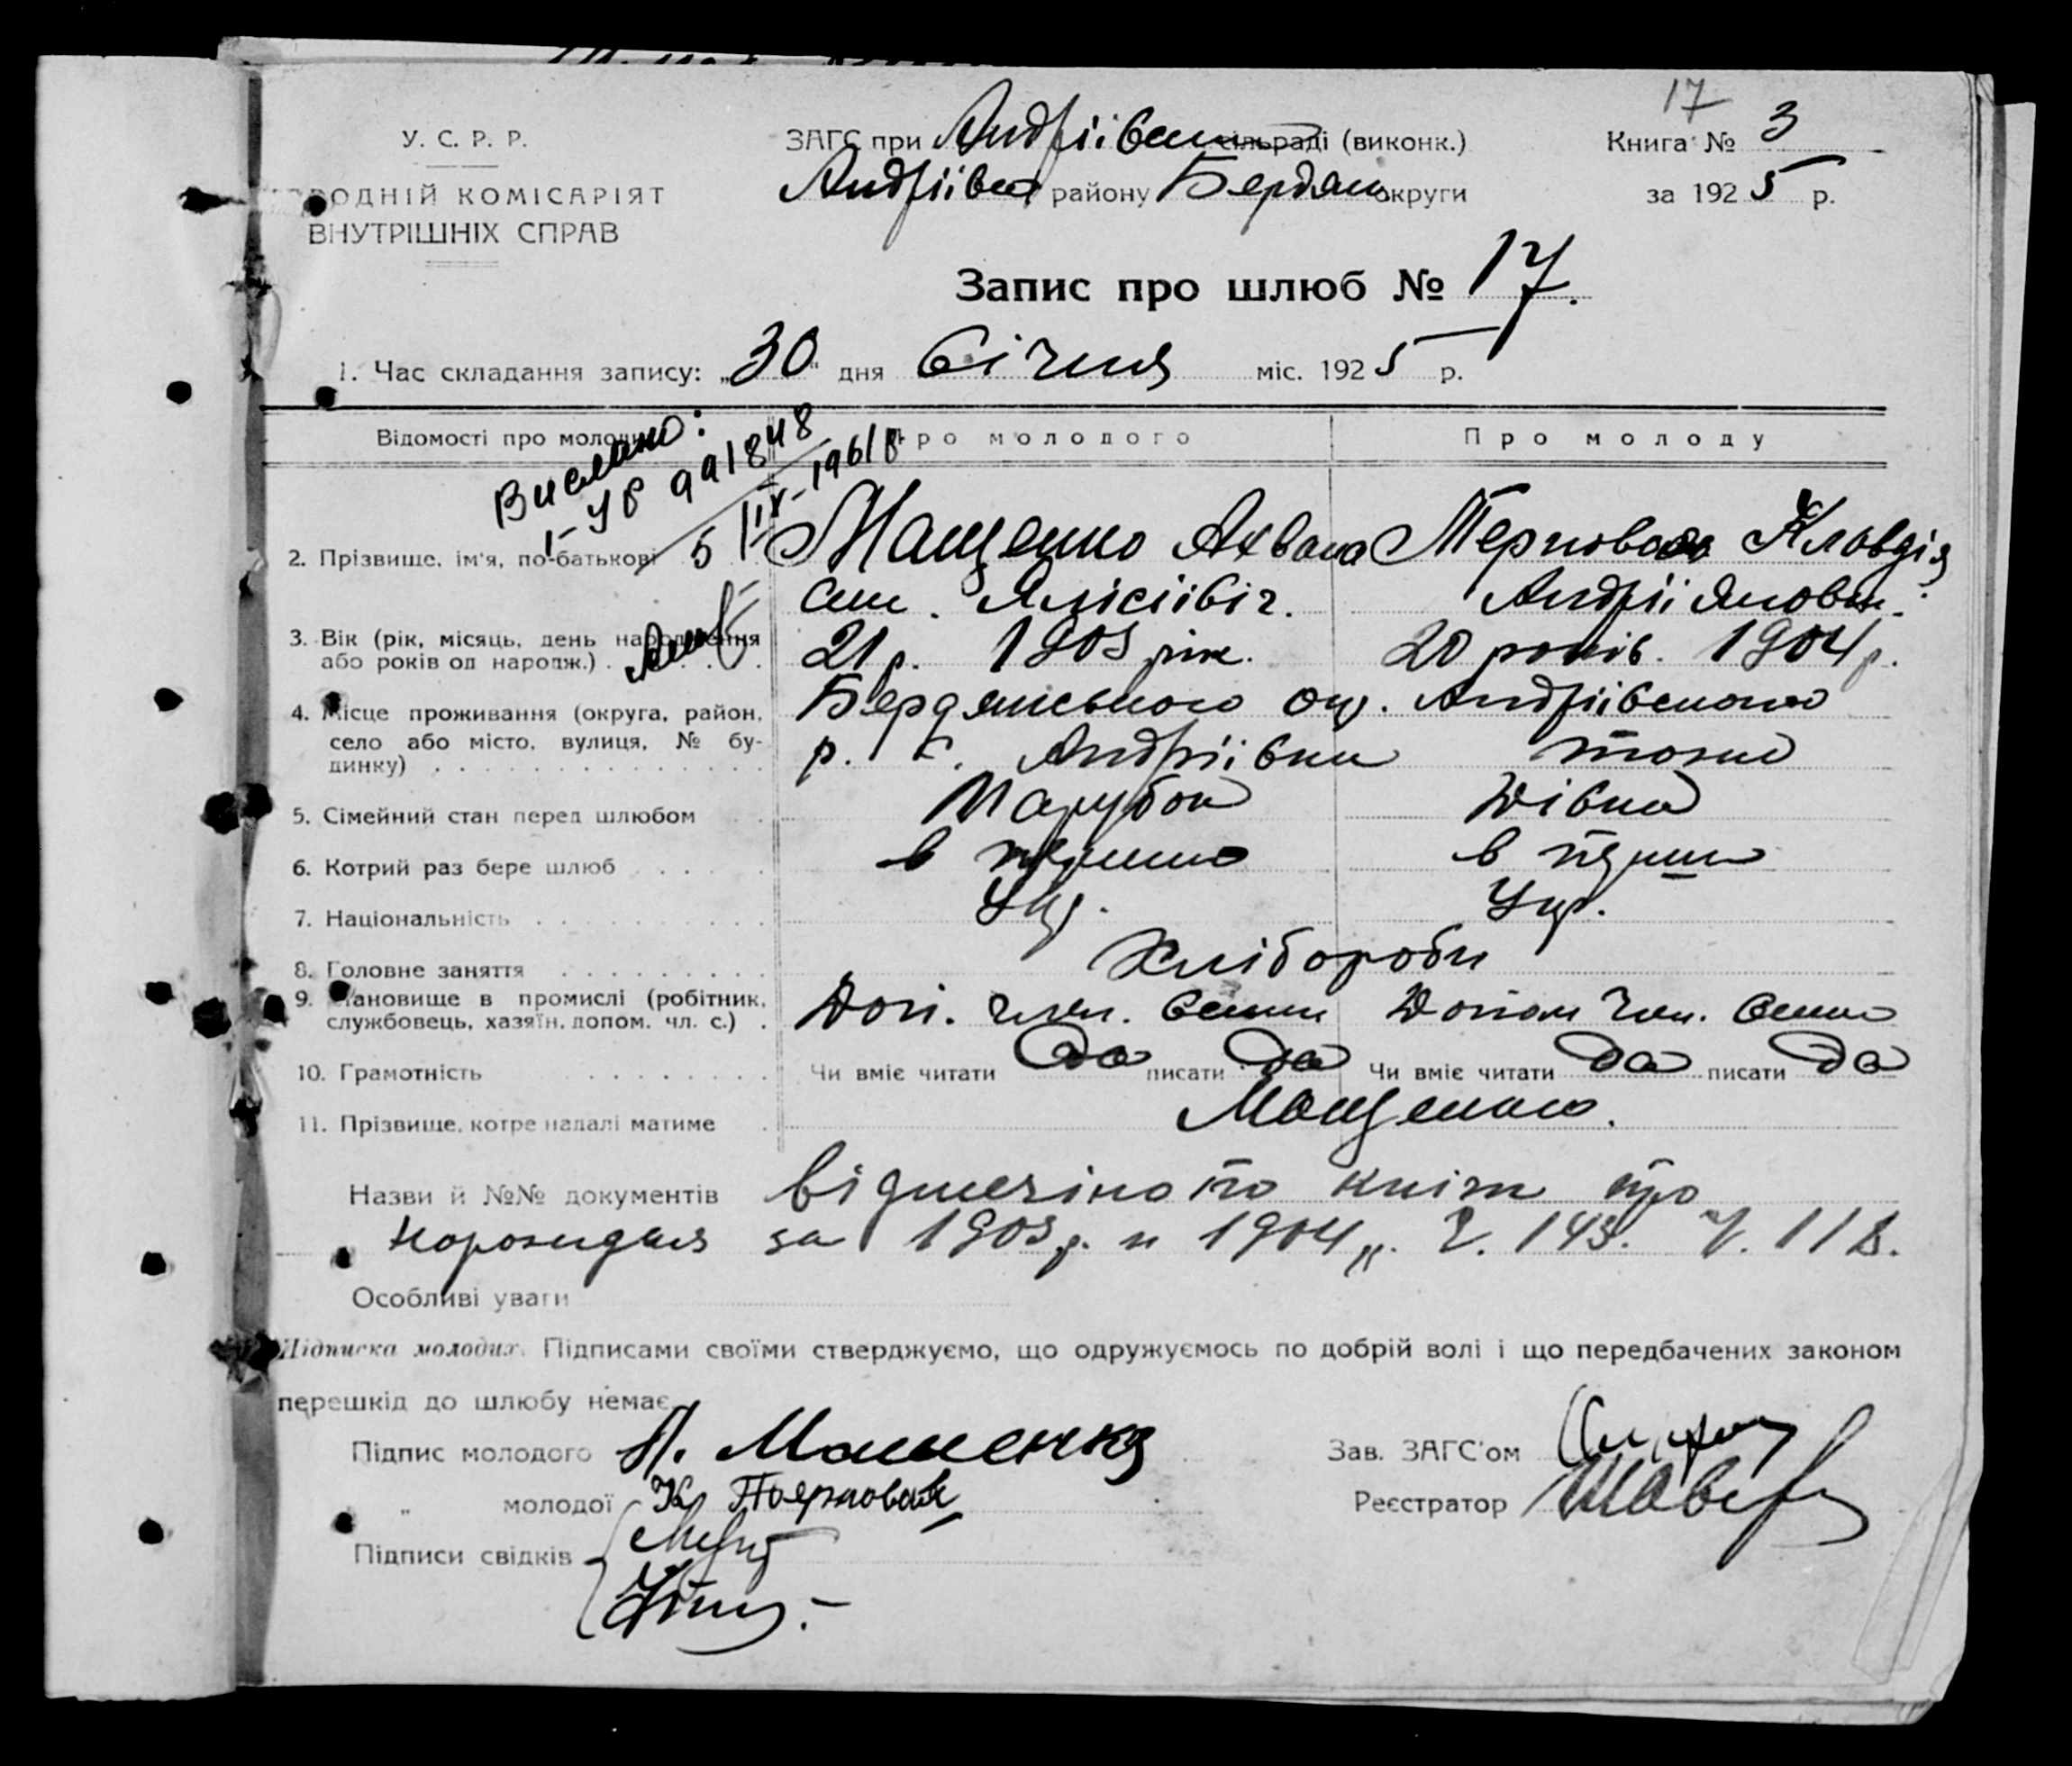 17
У. С. Р. Р.
ЗАГС при Андріївськ сільраді (виконк.)
Книга № 3
Андріївка району Бердян округи
за 1925 р.
ОДНІЙ КОМІСАРІЯТ
ВНУТРІШНІХ СПРАВ
Запис про шлюб № 17.
1. Час складання запису: „30" дня Січня міс. 1925 р.
Відомості про молодих
Про молодого
Про молоду
Вислано:
I-УБ 991848
5/IX-1961 р.
2. Прізвище, ім'я, по-батькові
Мащенко Ахвана
Терновая Клавдія
сии. Алісіівіч.
Андріїяновн.
3. Вік (рік, місяць, день народження
або років од народж.)
21 р. 1903 рік.
20 років. 1904 р.
4. Місце проживання (округа, район,
село або місто, вулиця, № бу-
динку)
Бердянського окр. Андріівського
р. с. Андріівки
тоже
5. Сімейний стан перед шлюбом
Парубок
Дівка
6. Котрий раз бере шлюб
в перше
в перше
7. Національність
Укр.
Укр.
8. Головне заняття
Хлібороби
9. Становище в промислі (робітник,
службовець, хазяїн, допом. чл. с.)
Доп. член. семи
Допом член. семи
10. Грамотність
Чи вміє читати да писати да
Чи вміє читати да писати да
11. Прізвище, котре надалі матиме
Мащенко.
Назви й №№ документів відмечіно по книги про
нарождения за 1903 р. и 1904 р. Ч. 143. Ч. 118.
Особливі уваги
Підписка молодих. Підписами своїми стверджуємо, що одружуємось по добрій волі і що передбачених законом
перешкід до шлюбу немає.
Підпис молодого А. Мащенко
Зав. ЗАГС'ом
„ молодої К Терновая
Реєстратор
Підписи свідків